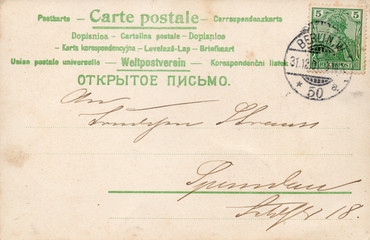 Postkarte — Carte postale — Correspondenzkarte
Dopisnica — Cartolina postale — Dopisnice
— Karta korespondencyjna — Levelező-Lap — Briefkaart
Union postale universelle — Weltpostverein — Korespondenční lístek
ОТКРЫТОЕ ПИСЬМО.
5 5
BERLIN W.
31.12
* 50 a
An
Strauss
Spandau
18.